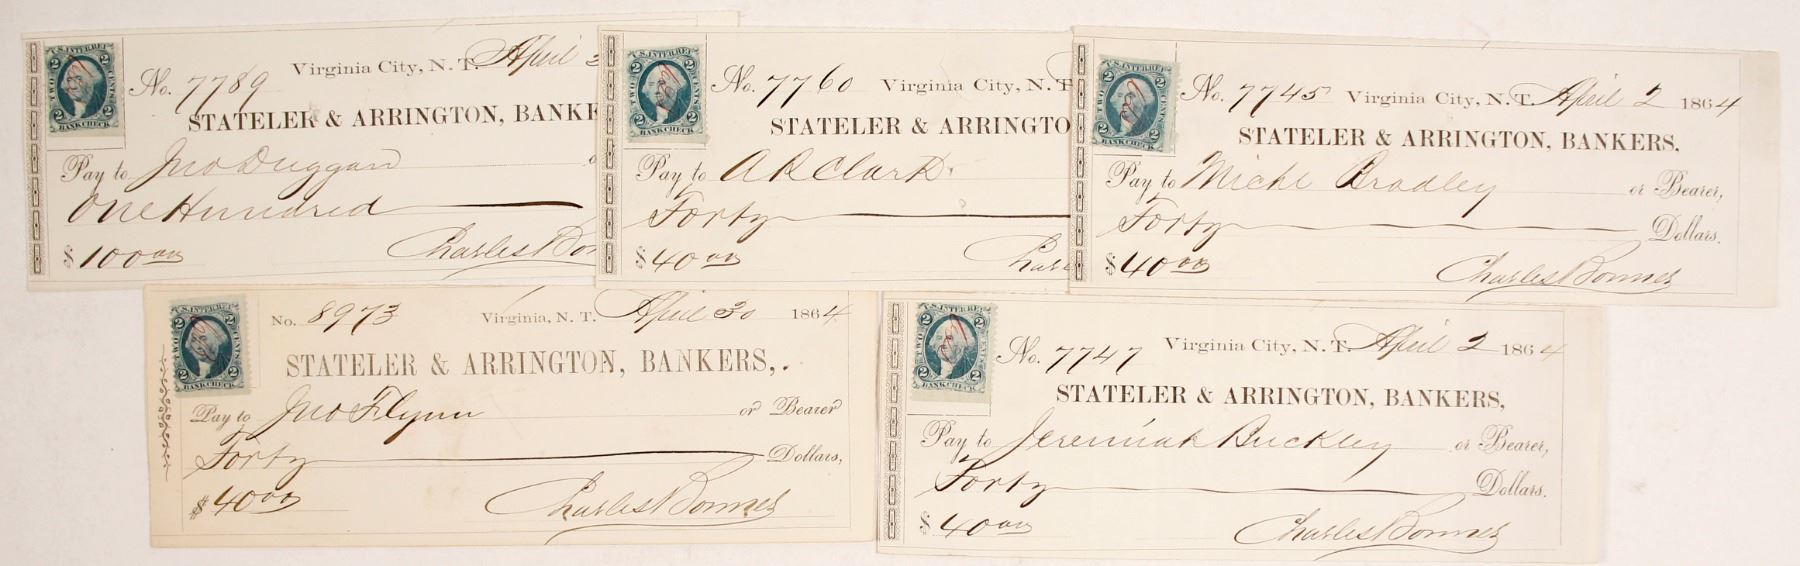 U.S. INTER. REV.
2 2
TWO CENTS
2 2
BANK CHECK
No. 7789 Virginia City, N. T. April
STATELER & ARRINGTON, BANKE
Pay to Jno Duggan
One Hundred
$ 100 00
Charles Bon
U.S. INTER. REV.
2 2
TWO CENTS
2 2
BANK CHECK
No. 7760 Virginia City, N. T
STATELER & ARRINGTO
Pay to A R Clark
Forty
$ 40 00
Charl
U.S. INTER. REV.
2 2
TWO CENTS
2 2
BANK CHECK
No. 7745 Virginia City, N. T. April 2 1864
STATELER & ARRINGTON, BANKERS,
Pay to Michl Bradley or Bearer,
Forty Dollars.
$ 40 00
Charles Bonner
U.S. INTER. REV.
2 2
TWO CENTS
2 2
BANK CHECK
No. 8973 Virginia, N. T. April 30 1864
STATELER & ARRINGTON, BANKERS,
Pay to Jno Flynn or Bearer
Forty Dollars,
$ 40 00
Charles Bonner
U.S. INTER. REV.
2 2
TWO CENTS
2 2
BANK CHECK
No. 7747 Virginia City, N. T. April 2 1864
STATELER & ARRINGTON, BANKERS,
Pay to Jeremiah Buckley or Bearer,
Forty Dollars.
$ 40 00
Charles Bonner